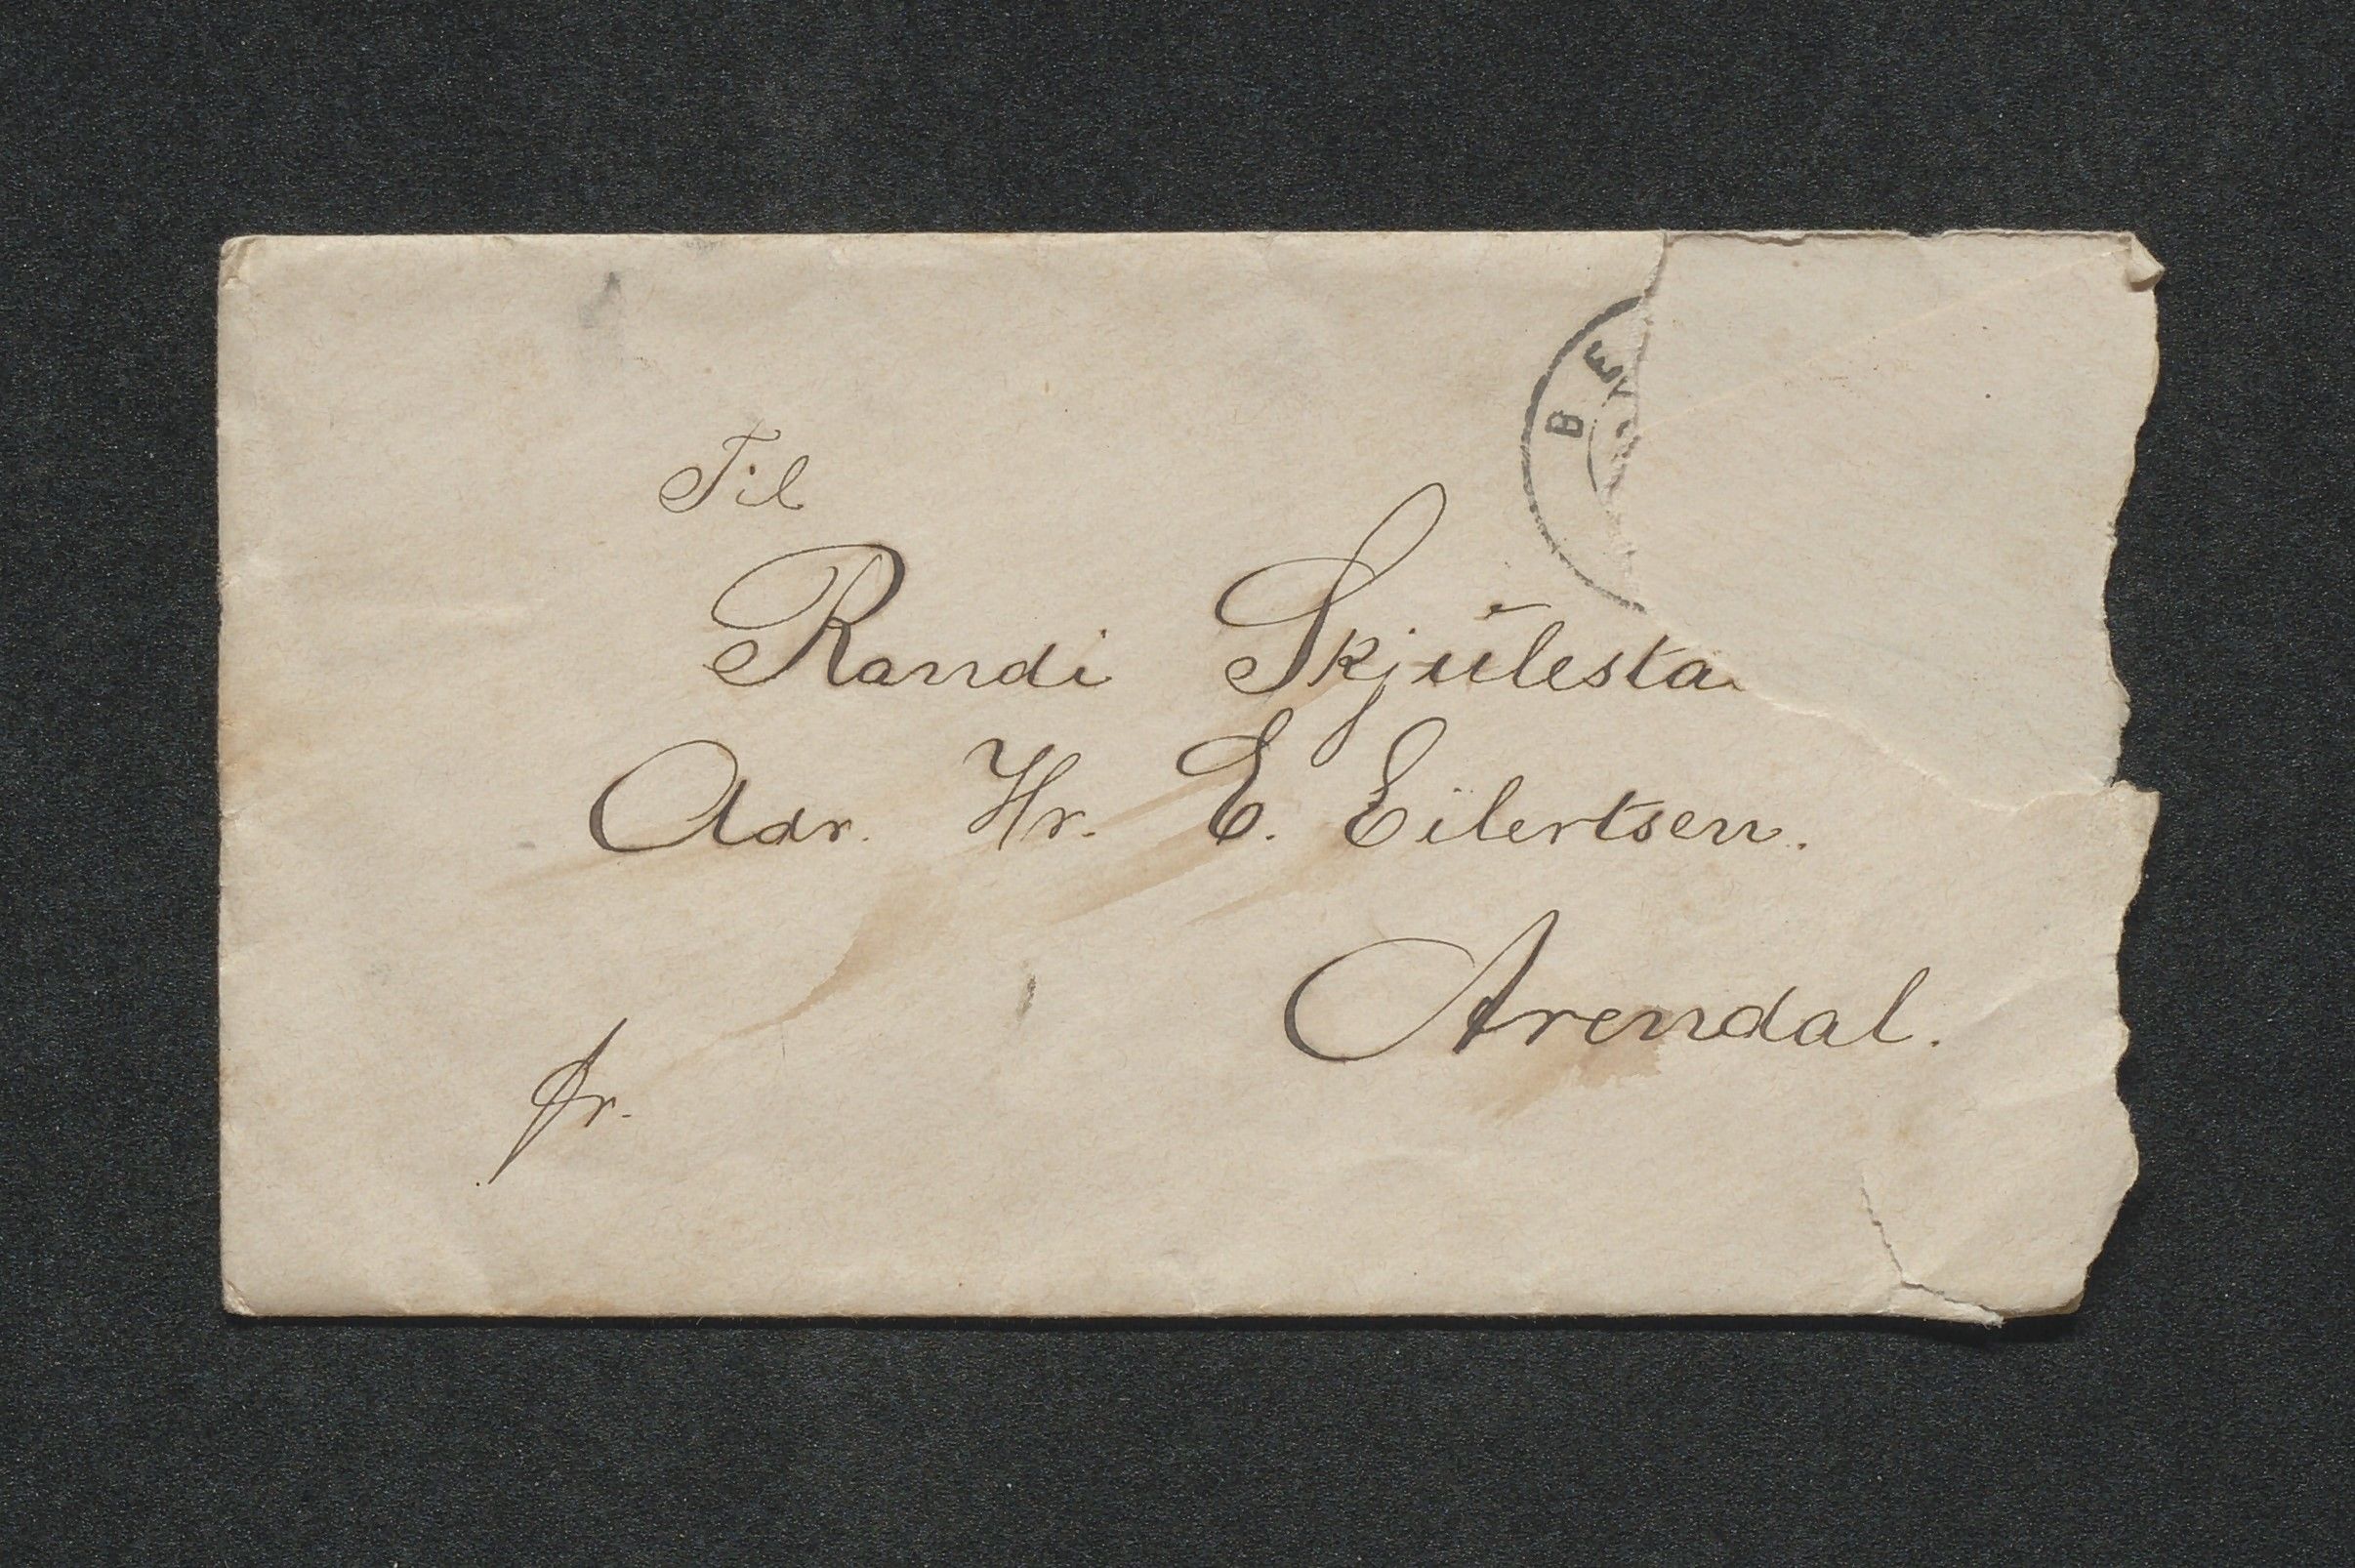 BE
Til
Randi Skjulesta
Adr. Hr. E. Eilertsen.
Arendal.
fr.